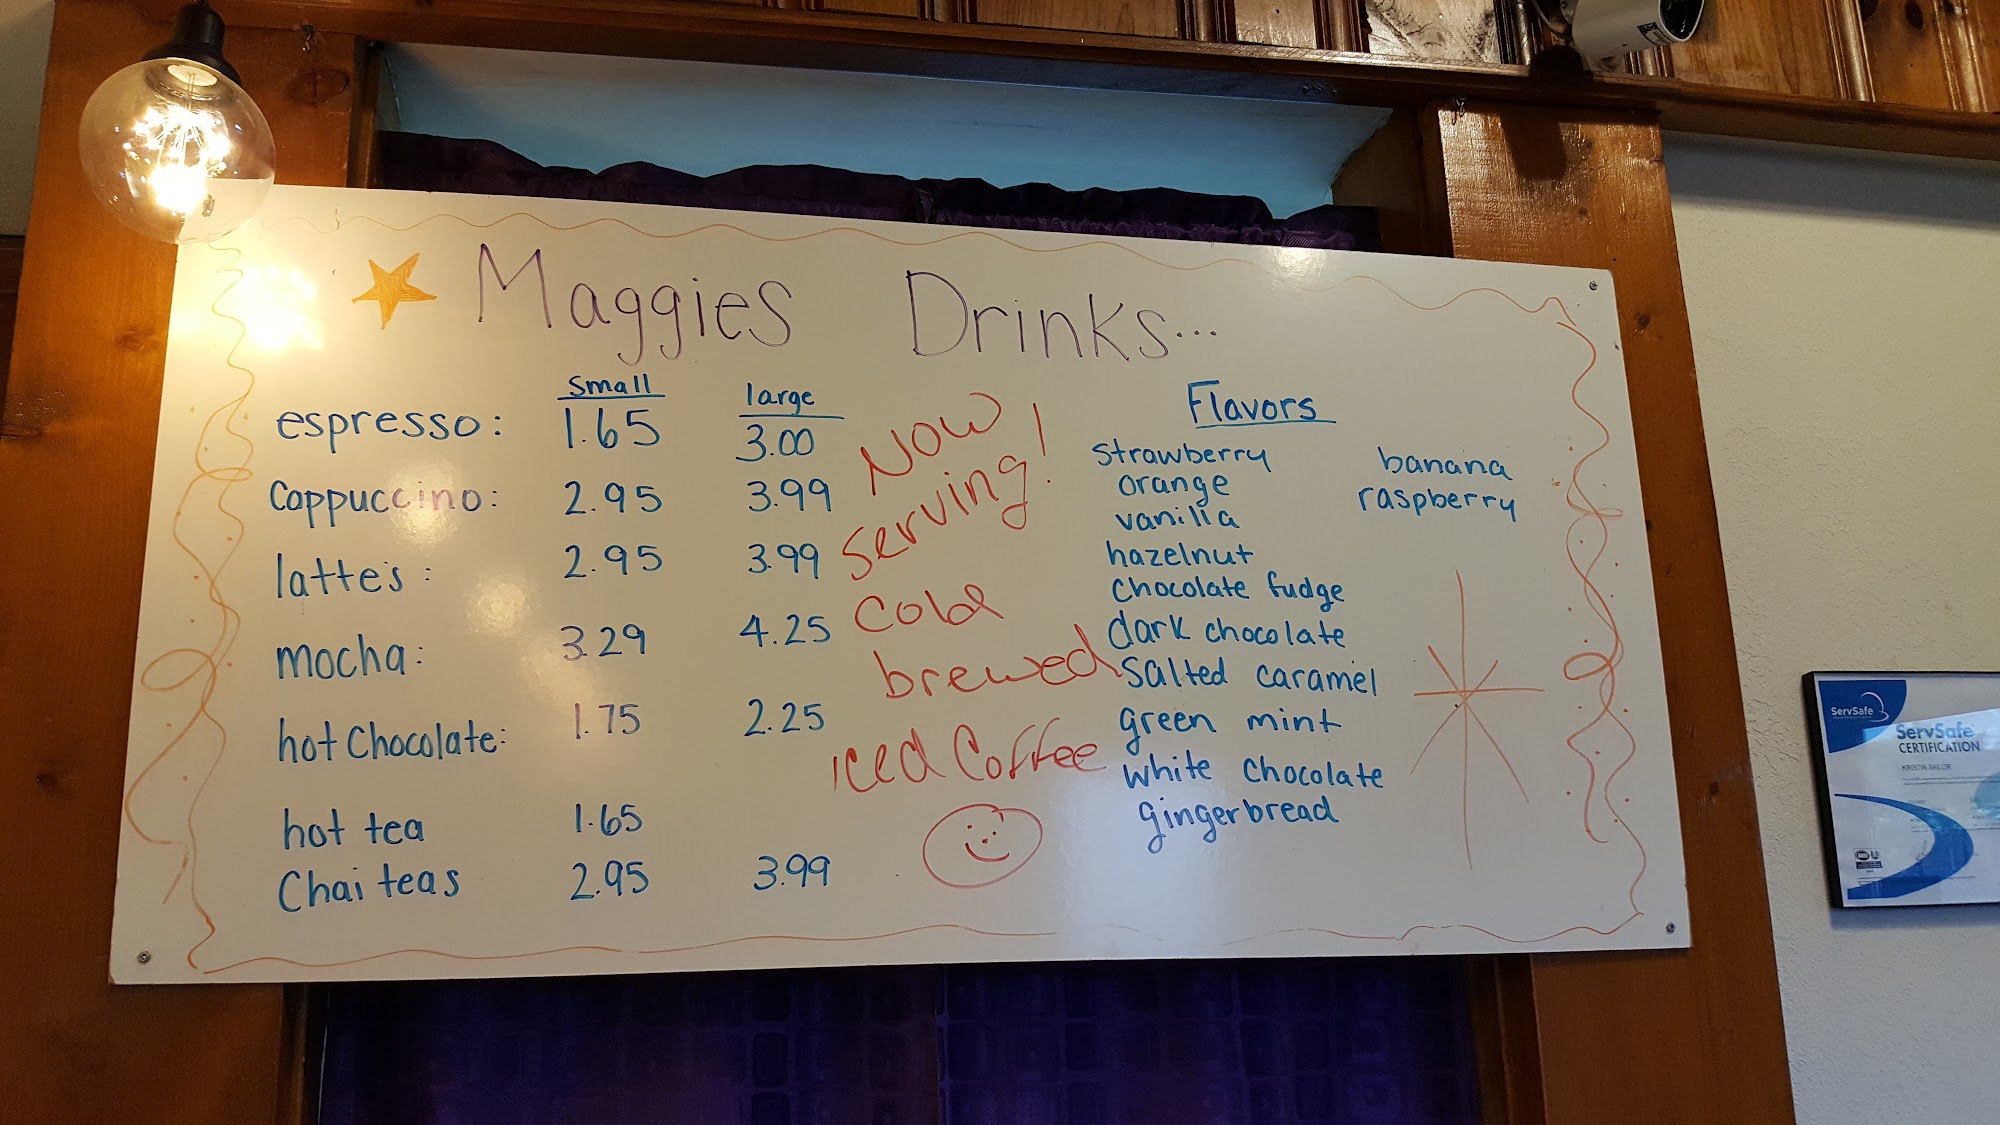 Maggies Drinks...
small large
espresso: 1.65 3.00
Cappuccino: 2.95 3.99
latte's: 2.95 3.99
mocha: 3.29 4.25
hot Chocolate: 1.75 2.25
hot tea 1.65
Chai teas 2.95 3.99
Now
serving!
Cold
brewed
iced Coffee
Flavors
strawberry
orange
vanilla
hazelnut
chocolate fudge
dark chocolate
salted caramel
green mint
white chocolate
gingerbread
banana
raspberry
ServSafe
ServSafe
CERTIFICATION
KRISTIN SAILOR